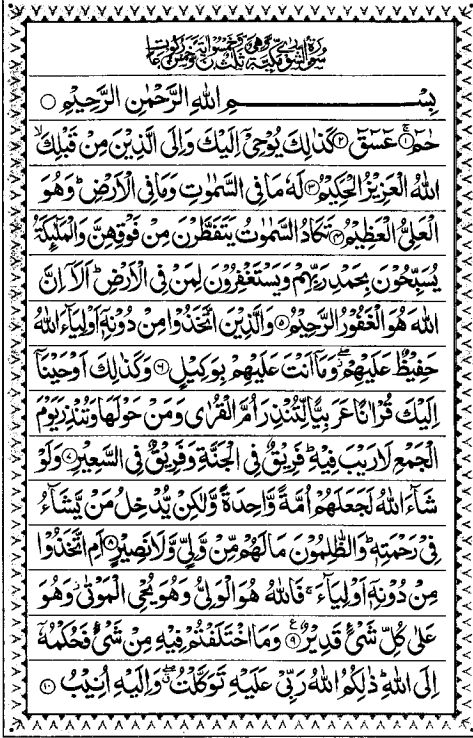 بِسْمِ اللهِ الرَّحْمٰنِ الرَّحِيْمِ ○
حٰمٓ ۚ﴿۱﴾ عٓسٓقٓ ﴿۲﴾ كَذٰلِكَ يُوْحِيْٓ اِلَيْكَ وَاِلَى الَّذِيْنَ مِنْ قَبْلِكَ ۙ
اللهُ الْعَزِيْزُ الْحَكِيْمُ ﴿۳﴾ لَهٗ مَا فِي السَّمٰوٰتِ وَمَا فِي الْاَرْضِ ؕ وَهُوَ
الْعَلِيُّ الْعَظِيْمُ ﴿۴﴾ تَكَادُ السَّمٰوٰتُ يَتَفَطَّرْنَ مِنْ فَوْقِهِنَّ وَالْمَلٰٓئِكَةُ
يُسَبِّحُوْنَ بِحَمْدِ رَبِّهِمْ وَيَسْتَغْفِرُوْنَ لِمَنْ فِي الْاَرْضِ ؕ اَلَآ اِنَّ
اللهَ هُوَ الْغَفُوْرُ الرَّحِيْمُ ﴿۵﴾ وَالَّذِيْنَ اتَّخَذُوْا مِنْ دُوْنِهٖٓ اَوْلِيَآءَ اللهُ
حَفِيْظٌ عَلَيْهِمْ ۖ وَمَآ اَنْتَ عَلَيْهِمْ بِوَكِيْلٍ ﴿۶﴾ وَكَذٰلِكَ اَوْحَيْنَآ
اِلَيْكَ قُرْاٰنًا عَرَبِيًّا لِّتُنْذِرَ اُمَّ الْقُرٰى وَمَنْ حَوْلَهَا وَتُنْذِرَ يَوْمَ
الْجَمْعِ لَا رَيْبَ فِيْهِ ؕ فَرِيْقٌ فِي الْجَنَّةِ وَفَرِيْقٌ فِي السَّعِيْرِ ﴿۷﴾ وَلَوْ
شَآءَ اللهُ لَجَعَلَهُمْ اُمَّةً وَّاحِدَةً وَّلٰكِنْ يُّدْخِلُ مَنْ يَّشَآءُ
فِيْ رَحْمَتِهٖ ؕ وَالظّٰلِمُوْنَ مَا لَهُمْ مِّنْ وَّلِيٍّ وَّلَا نَصِيْرٍ ﴿۸﴾ اَمِ اتَّخَذُوْا
مِنْ دُوْنِهٖٓ اَوْلِيَآءَ ۚ فَاللهُ هُوَ الْوَلِيُّ وَهُوَ يُحْيِ الْمَوْتٰى ۡ وَهُوَ
عَلٰى كُلِّ شَيْءٍ قَدِيْرٌ ﴿۹﴾ وَمَا اخْتَلَفْتُمْ فِيْهِ مِنْ شَيْءٍ فَحُكْمُهٗٓ
اِلَى اللهِ ؕ ذٰلِكُمُ اللهُ رَبِّيْ عَلَيْهِ تَوَكَّلْتُ ۖ وَاِلَيْهِ اُنِيْبُ ﴿۱۰﴾